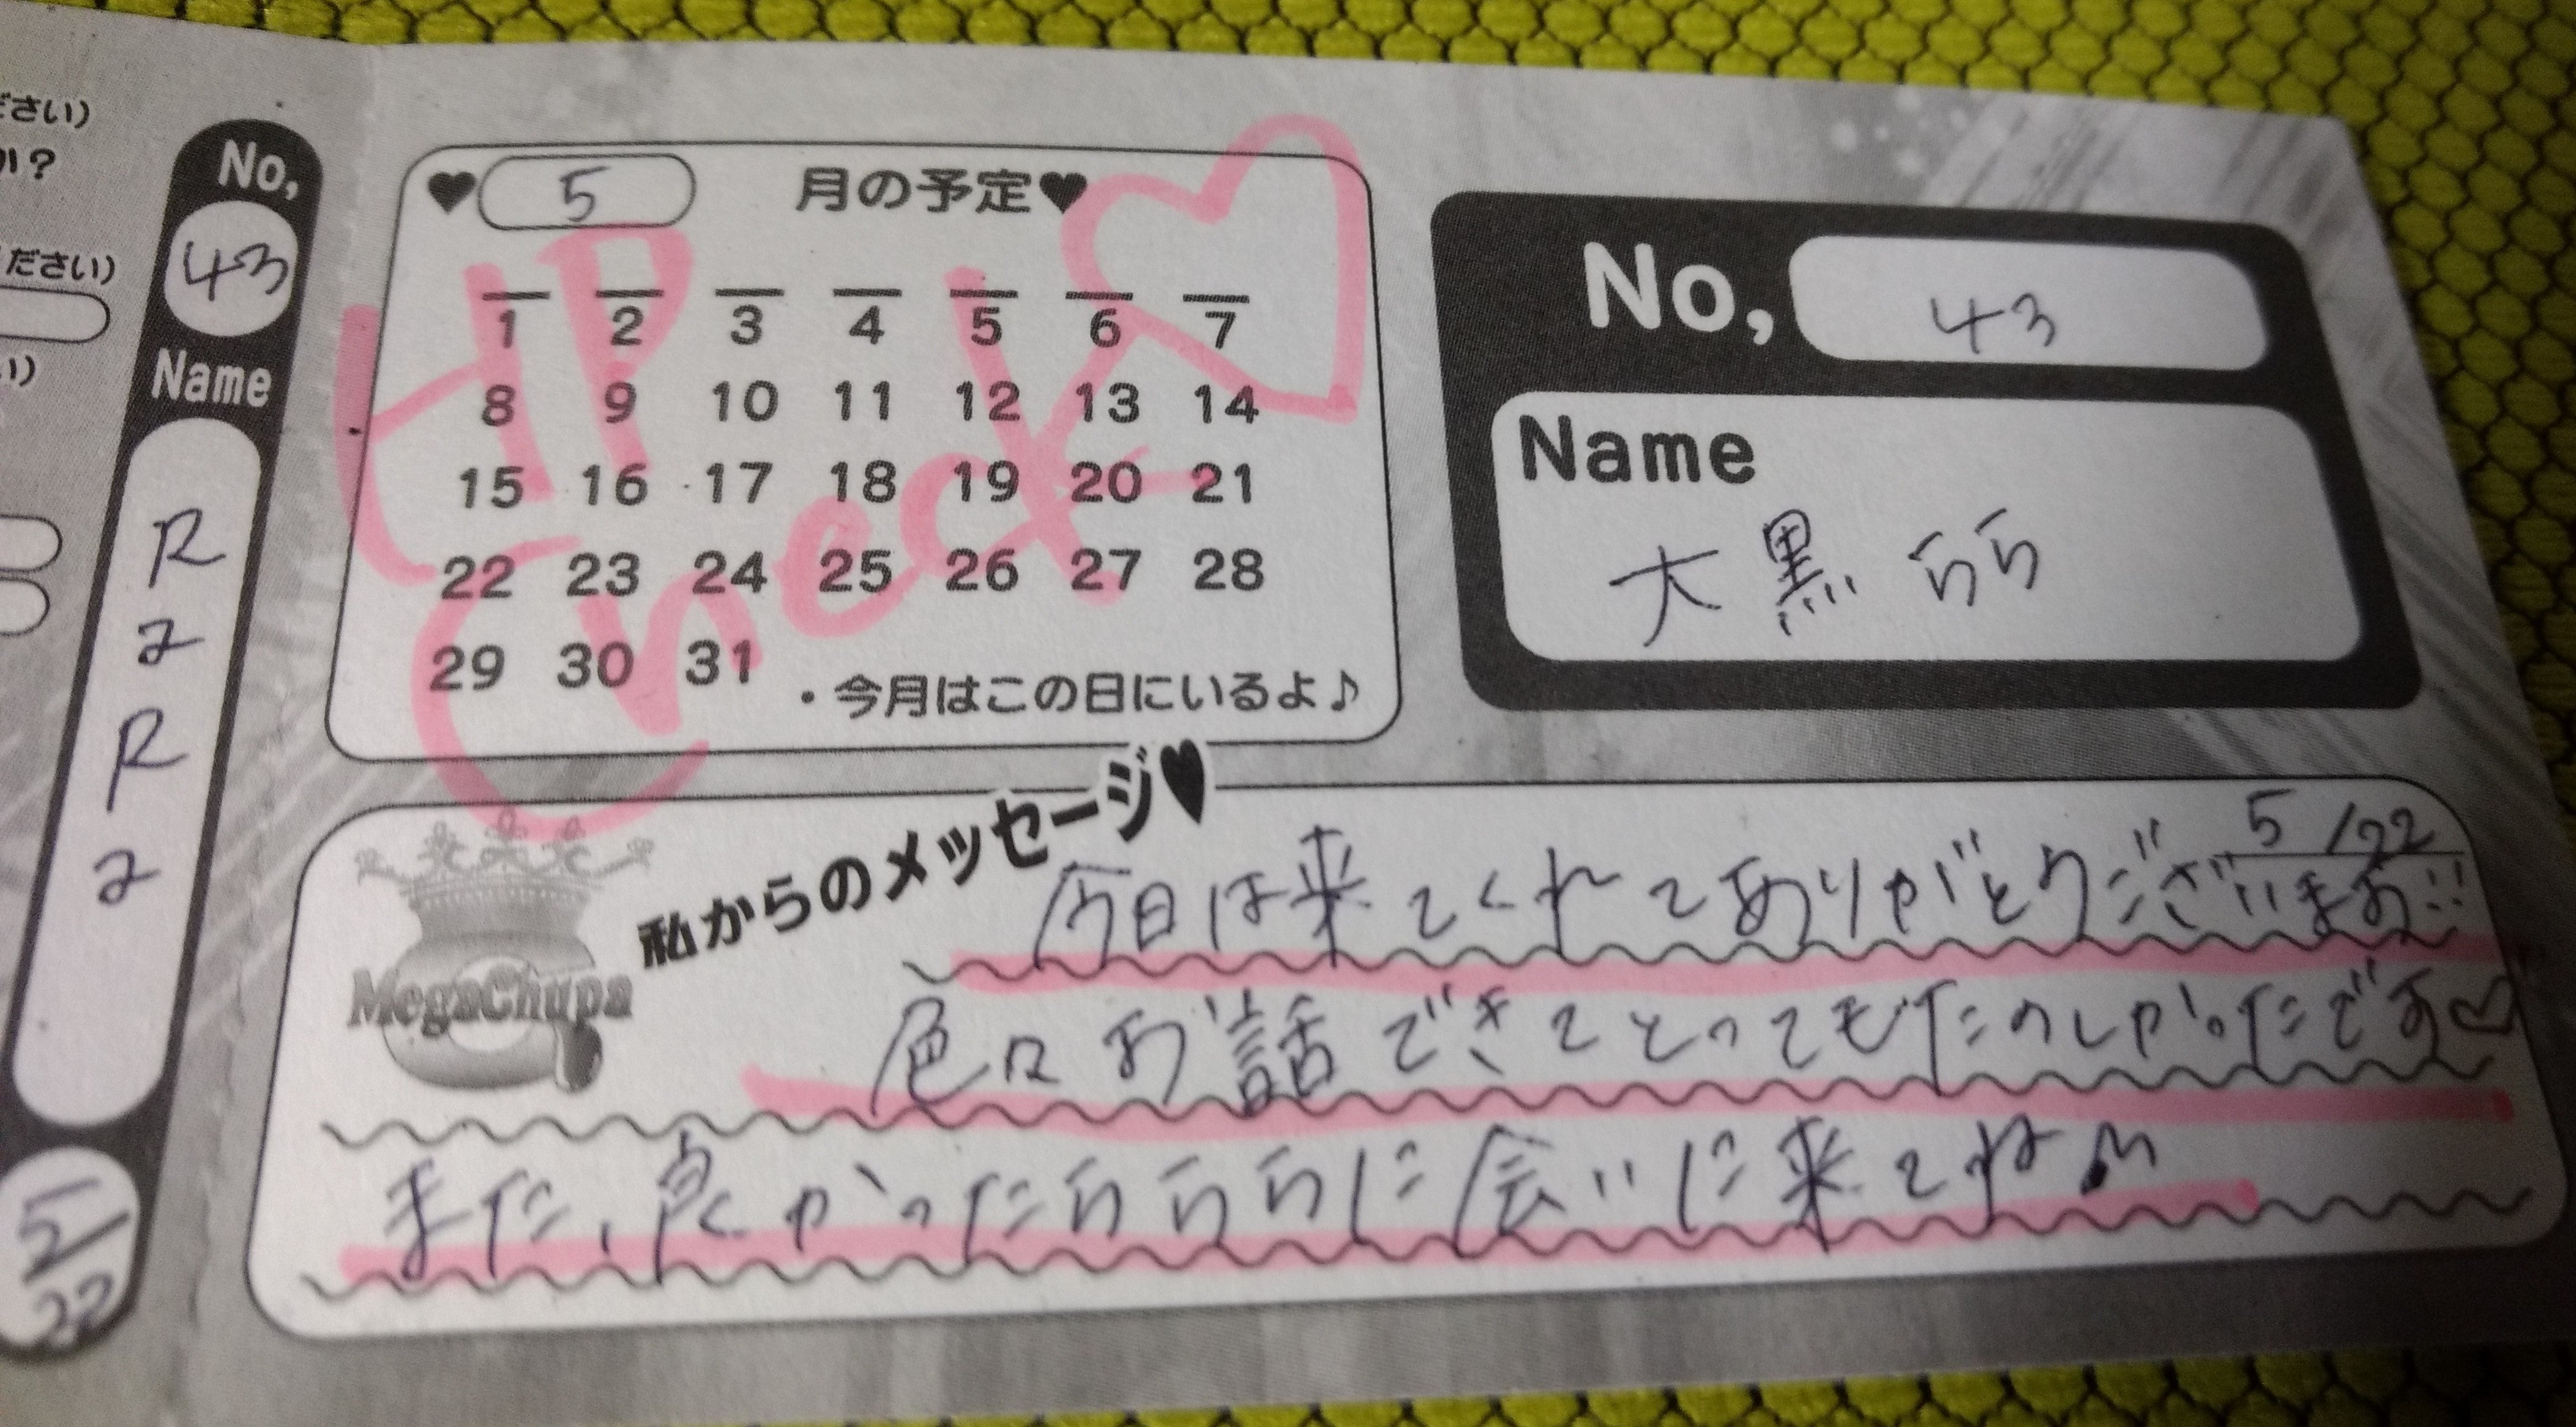 ださい)
か?
ださい)
い)
No,
43
Name
R
a
R
a
5/22
♥ 5 月の予定♥
1 2 3 4 5 6 7
8 9 10 11 12 13 14
15 16 17 18 19 20 21
22 23 24 25 26 27 28
29 30 31
・今月はこの日にいるよ♪
HP
Check
No, 43
Name
大黒 らら
MegaChupa
私からのメッセージ♥
5/22
今日は来てくれてありがとうございます!!
色々お話できてとってもたのしかったです♡
また、良かったらららに会いに来てね♪